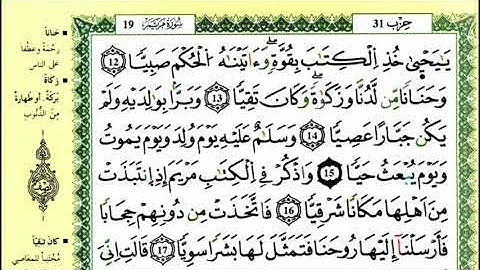 حِزْب 31
سُورَةُ مَرْيَمَ 19
يَٰيَحْيَىٰ خُذِ اِ۬لْكِتَٰبَ بِقُوَّةٖۖ وَءَاتَيْنَٰهُ اُ۬لْحُكْمَ صَبِيّاٗ 12
وَحَنَاناٗ مِّن لَّدُنَّا وَزَكَوٰةٗۖ وَكَانَ تَقِيّاٗ 13 وَبَرّاَۢ بِوَٰلِدَيْهِ وَلَمْ
يَكُن جَبَّاراً عَصِيّاٗ 14 وَسَلَٰمٌ عَلَيْهِ يَوْمَ وُلِدَ وَيَوْمَ يَمُوتُ
وَيَوْمَ يُبْعَثُ حَيّاٗ 15 وَاذْكُرْ فِے اِ۬لْكِتَٰبِ مَرْيَمَ إِذِ اِ۪نتَبَذَتْ
مِنَ اَهْلِهَا مَكَاناٗ شَرْقِيّاٗ 16 فَاتَّخَذَتْ مِن دُونِهِمْ حِجَاباٗ
فَأَرْسَلْنَا إِلَيْهَا رُوحَنَا فَتَمَثَّلَ لَهَا بَشَراٗ سَوِيّاٗ 17 قَالَتِ اِنِّيَ
حَنَاناً
رَحْمَةً وَعَطْفاً
على الناس
زَكَاةً
بَرَكَةً، أو طهارةً
مِنَ الذُّنُوب
كان تَقِيّاً
مُجْتَنِباً للمعاصي